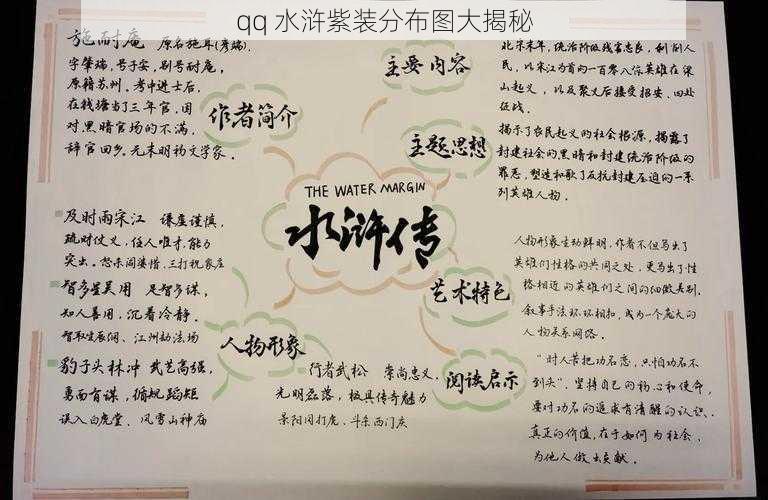 qq 水浒紫装分布图大揭秘
施耐庵 原名施耳(彦端),
字肇瑞,号子安,别号耐庵,
原籍苏州。考中进士后,
在钱塘当了三年官,因
对黑暗官场的不满,
辞官回乡。元末明初文学家。
作者简介
主要内容
北宋末年,统治阶级残害忠良,剥削人
民,以宋江为首的一百零八位英雄在梁
山起义,以及聚义后接受招安、四处
征战。
主题思想
揭示了农民起义的社会根源,揭露了
封建社会的黑暗和封建统治阶级的
罪恶,塑造和歌了反抗封建压迫的一系
列英雄人物。
THE WATER MARGIN
水浒传
及时雨宋江 谦虚谨慎,
疏财仗义,任人唯才,能力
突出。怒杀阎婆惜,三打祝家庄
智多星吴用 足智多谋,
知人善用,沉着冷静。
智取生辰纲、江州劫法场
豹子头林冲 武艺高强,
勇而有谋,循规蹈矩
误入白虎堂、风雪山神庙
人物形象
行者武松 崇尚忠义,
光明磊落,极具传奇魅力
景阳冈打虎、斗杀西门庆
艺术特色
人物形象生动鲜明,作者不但写出了
英雄们性格的共同之处,更写出了性
格相近的英雄们之间的细微差别。
叙事手法环环相扣,成为一个庞大的
人物关系网络。
阅读启示
"时人苦把功名恋,只怕功名不
到头"。坚持自己的初心和使命,
要对功名的追求有清醒的认识。
真正的价值,在于如何为社会、
为他人做出贡献。